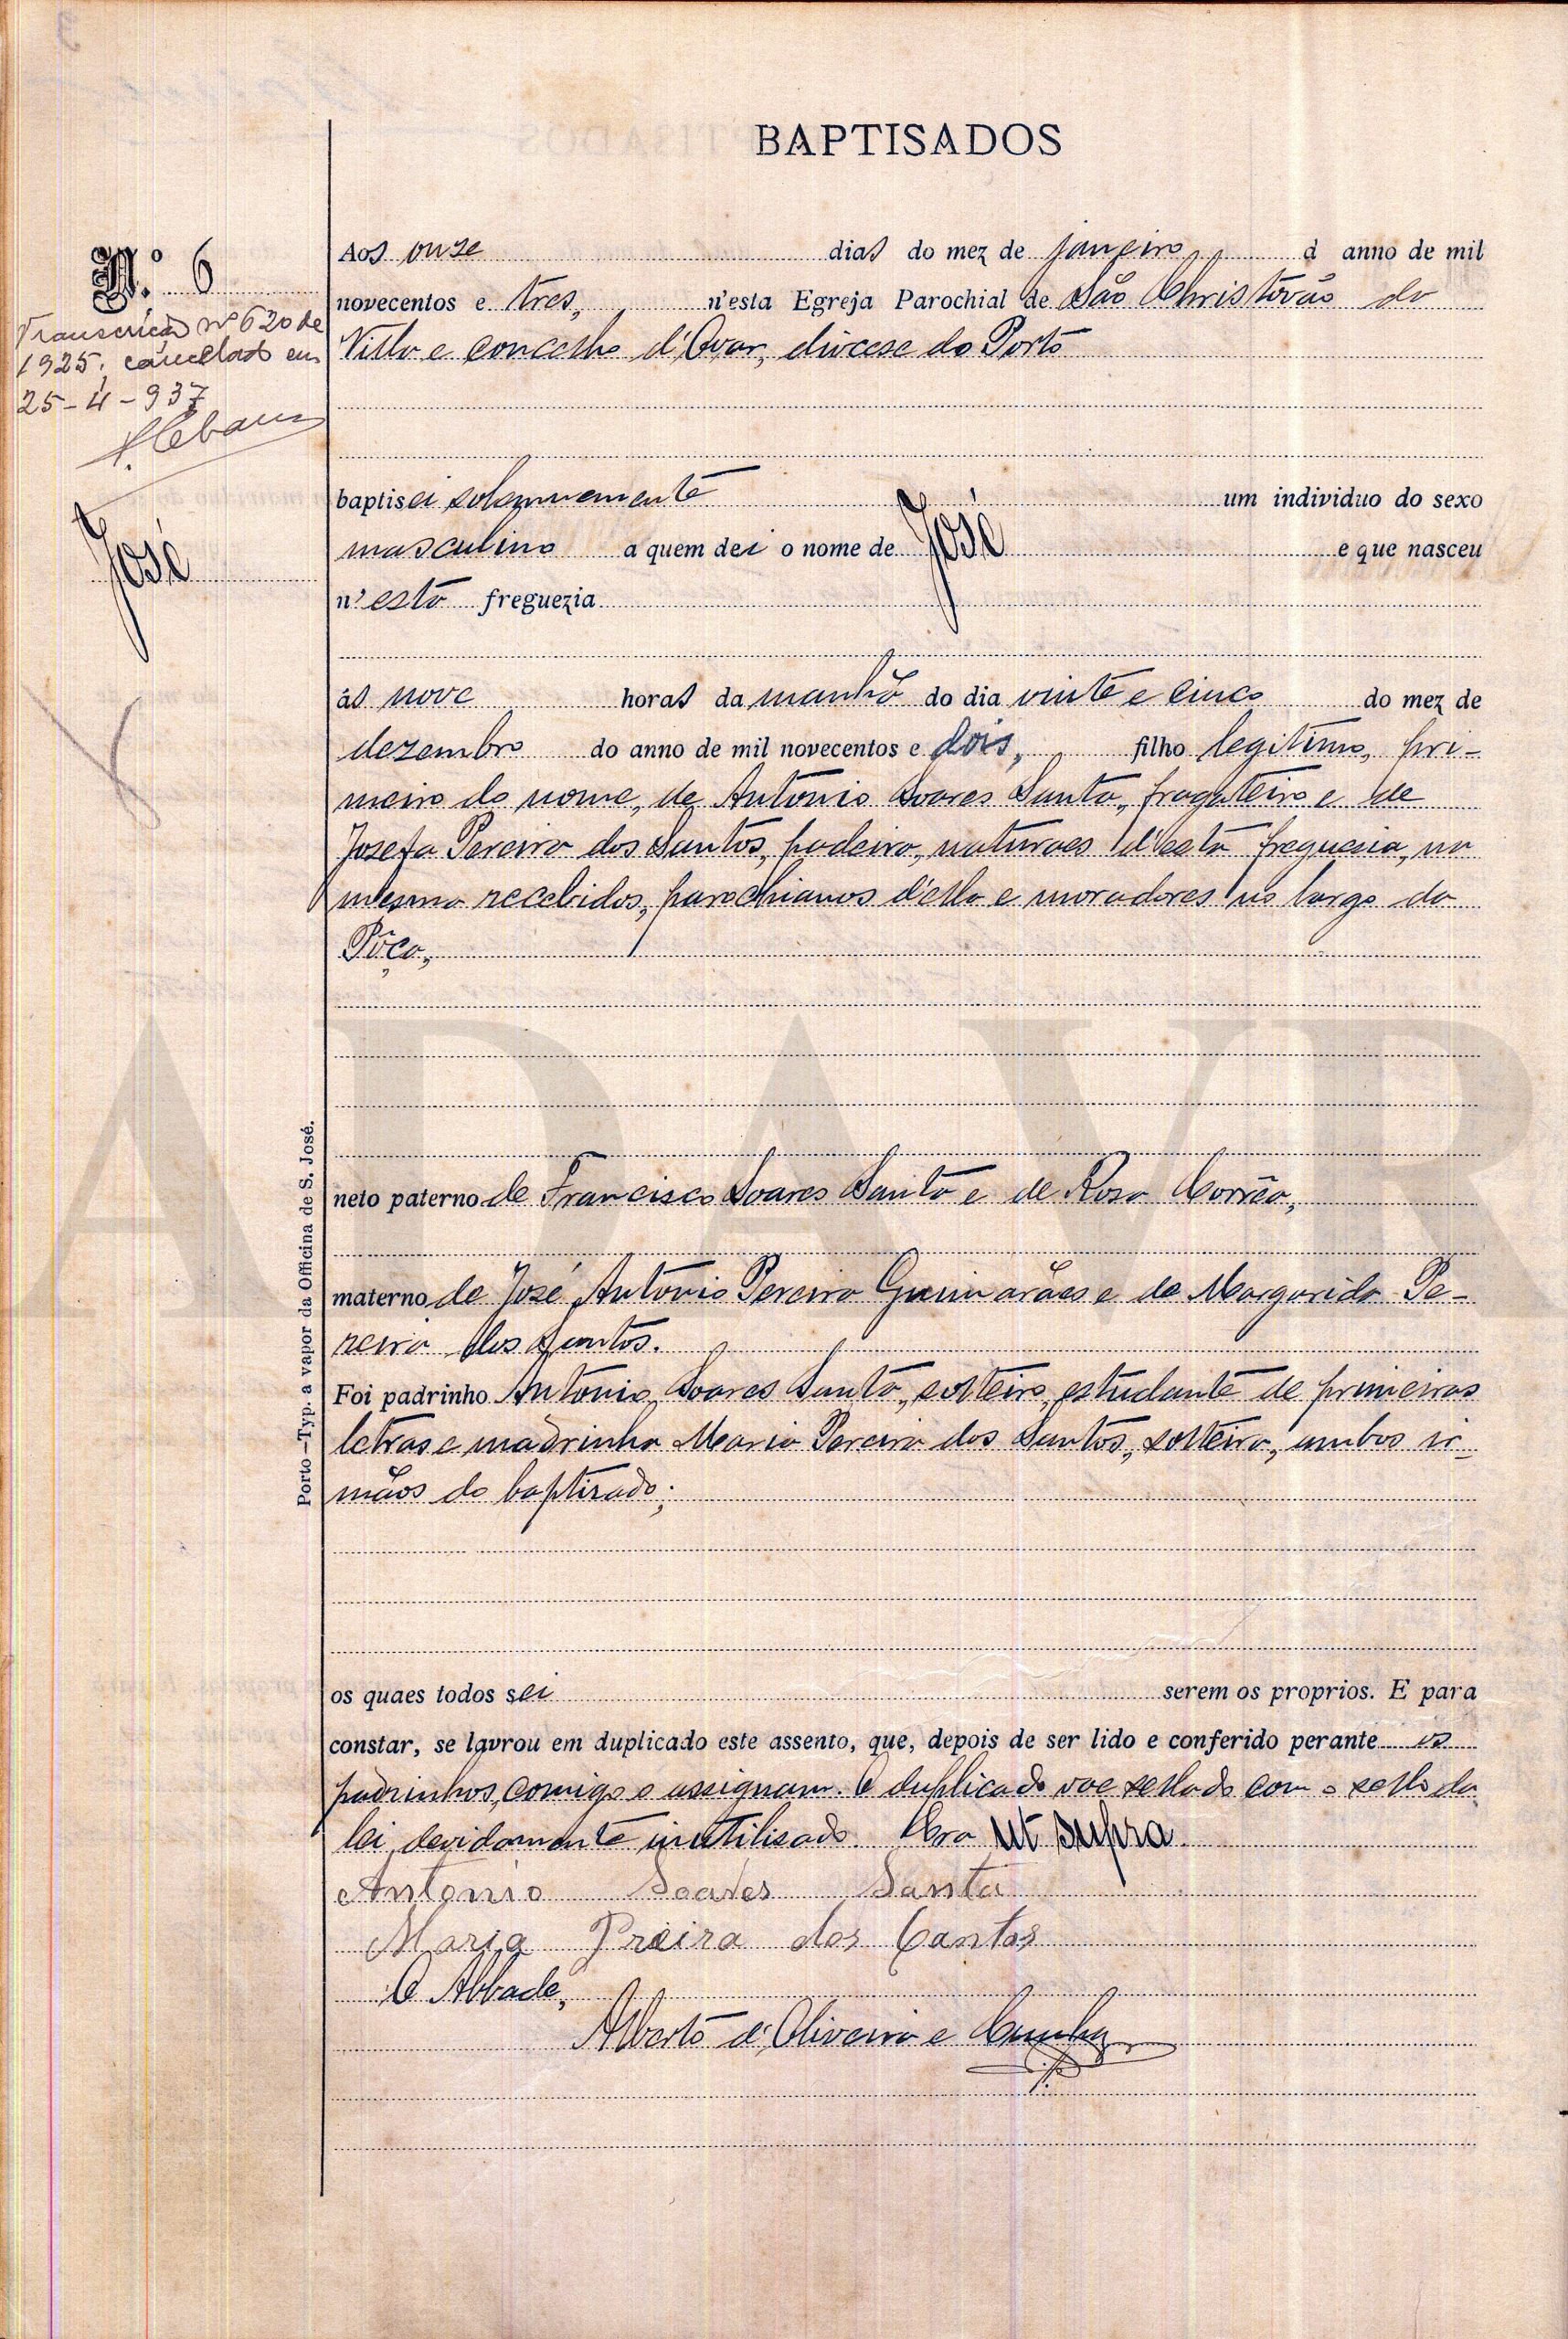 BAPTISADOS
N.º 6
Transcrição nº 620 de
1925. cancelado em
25-4-937
José
Aos onze dias do mez de janeiro, d anno de mil
novecentos e tres, n'esta Egreja Parochial de São Christovão da
Villa e concelho d'Ovar, diocese do Porto
baptisei solemnemente um individuo do sexo
masculino a quem dei o nome de José e que nasceu
n'esta freguezia
ás nove horas da manhã do dia vinte e cinco do mez de
dezembro do anno de mil novecentos e dois, filho legitimo, pri-
meiro do nome, de Antonio Soares Santa, fragateiro e de
Josefa Pereira dos Santos, padeira, naturaes d'esta freguesia, na
mesma recebidos, parochianos d'ella e moradores no largo da
Pôça,
neto paterno de Francisco Soares Santa e de Rosa Corrêa,
materno de José Antonio Pereira Guimarães e de Margarida Pe-
reira dos Santos.
Foi padrinho Antonio Soares Santa, solteiro, estudante de primeiras
letras e madrinha Maria Pereira dos Santos, solteira, ambos ir-
mãos do baptizado;
os quaes todos sei serem os proprios. E para
constar, se lavrou em duplicado este assento, que, depois de ser lido e conferido perante os
padrinhos, comigo o assignam. O duplicado vae sellado com o sello da
lei, devidamente inutilisado. Era ut supra.
Antonio Soares Santa
Maria Preira dos Cantos
O Abbade,
Alberto d'Oliveira e Cunha
Porto—Typ. a vapor da Officina de S. José.
ADAVR